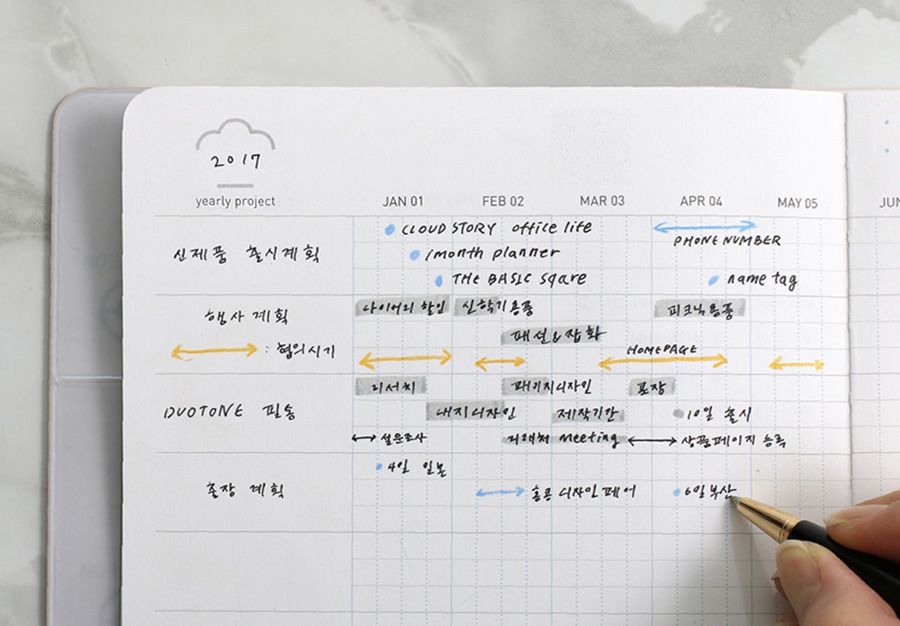 2017
yearly project
JAN 01 FEB 02 MAR 03 APR 04 MAY 05 JUN
신제품 출시계획
CLOUD STORY office life
PHONE NUMBER
1month planner
THE BASIC sqare
name tag
행사 계획
다이어리 할인 신학기용품 피크닉용품
패션&잡화
: 협의시기
HOMEPAGE
DUOTONE 필송
리서치 패키지디자인 포장
내지디자인 제작기간 10일 출시
설문조사 거래처 meeting 상품페이지 등록
출장 계획
4일 일본
홍콩 디자인페어 6일 부산